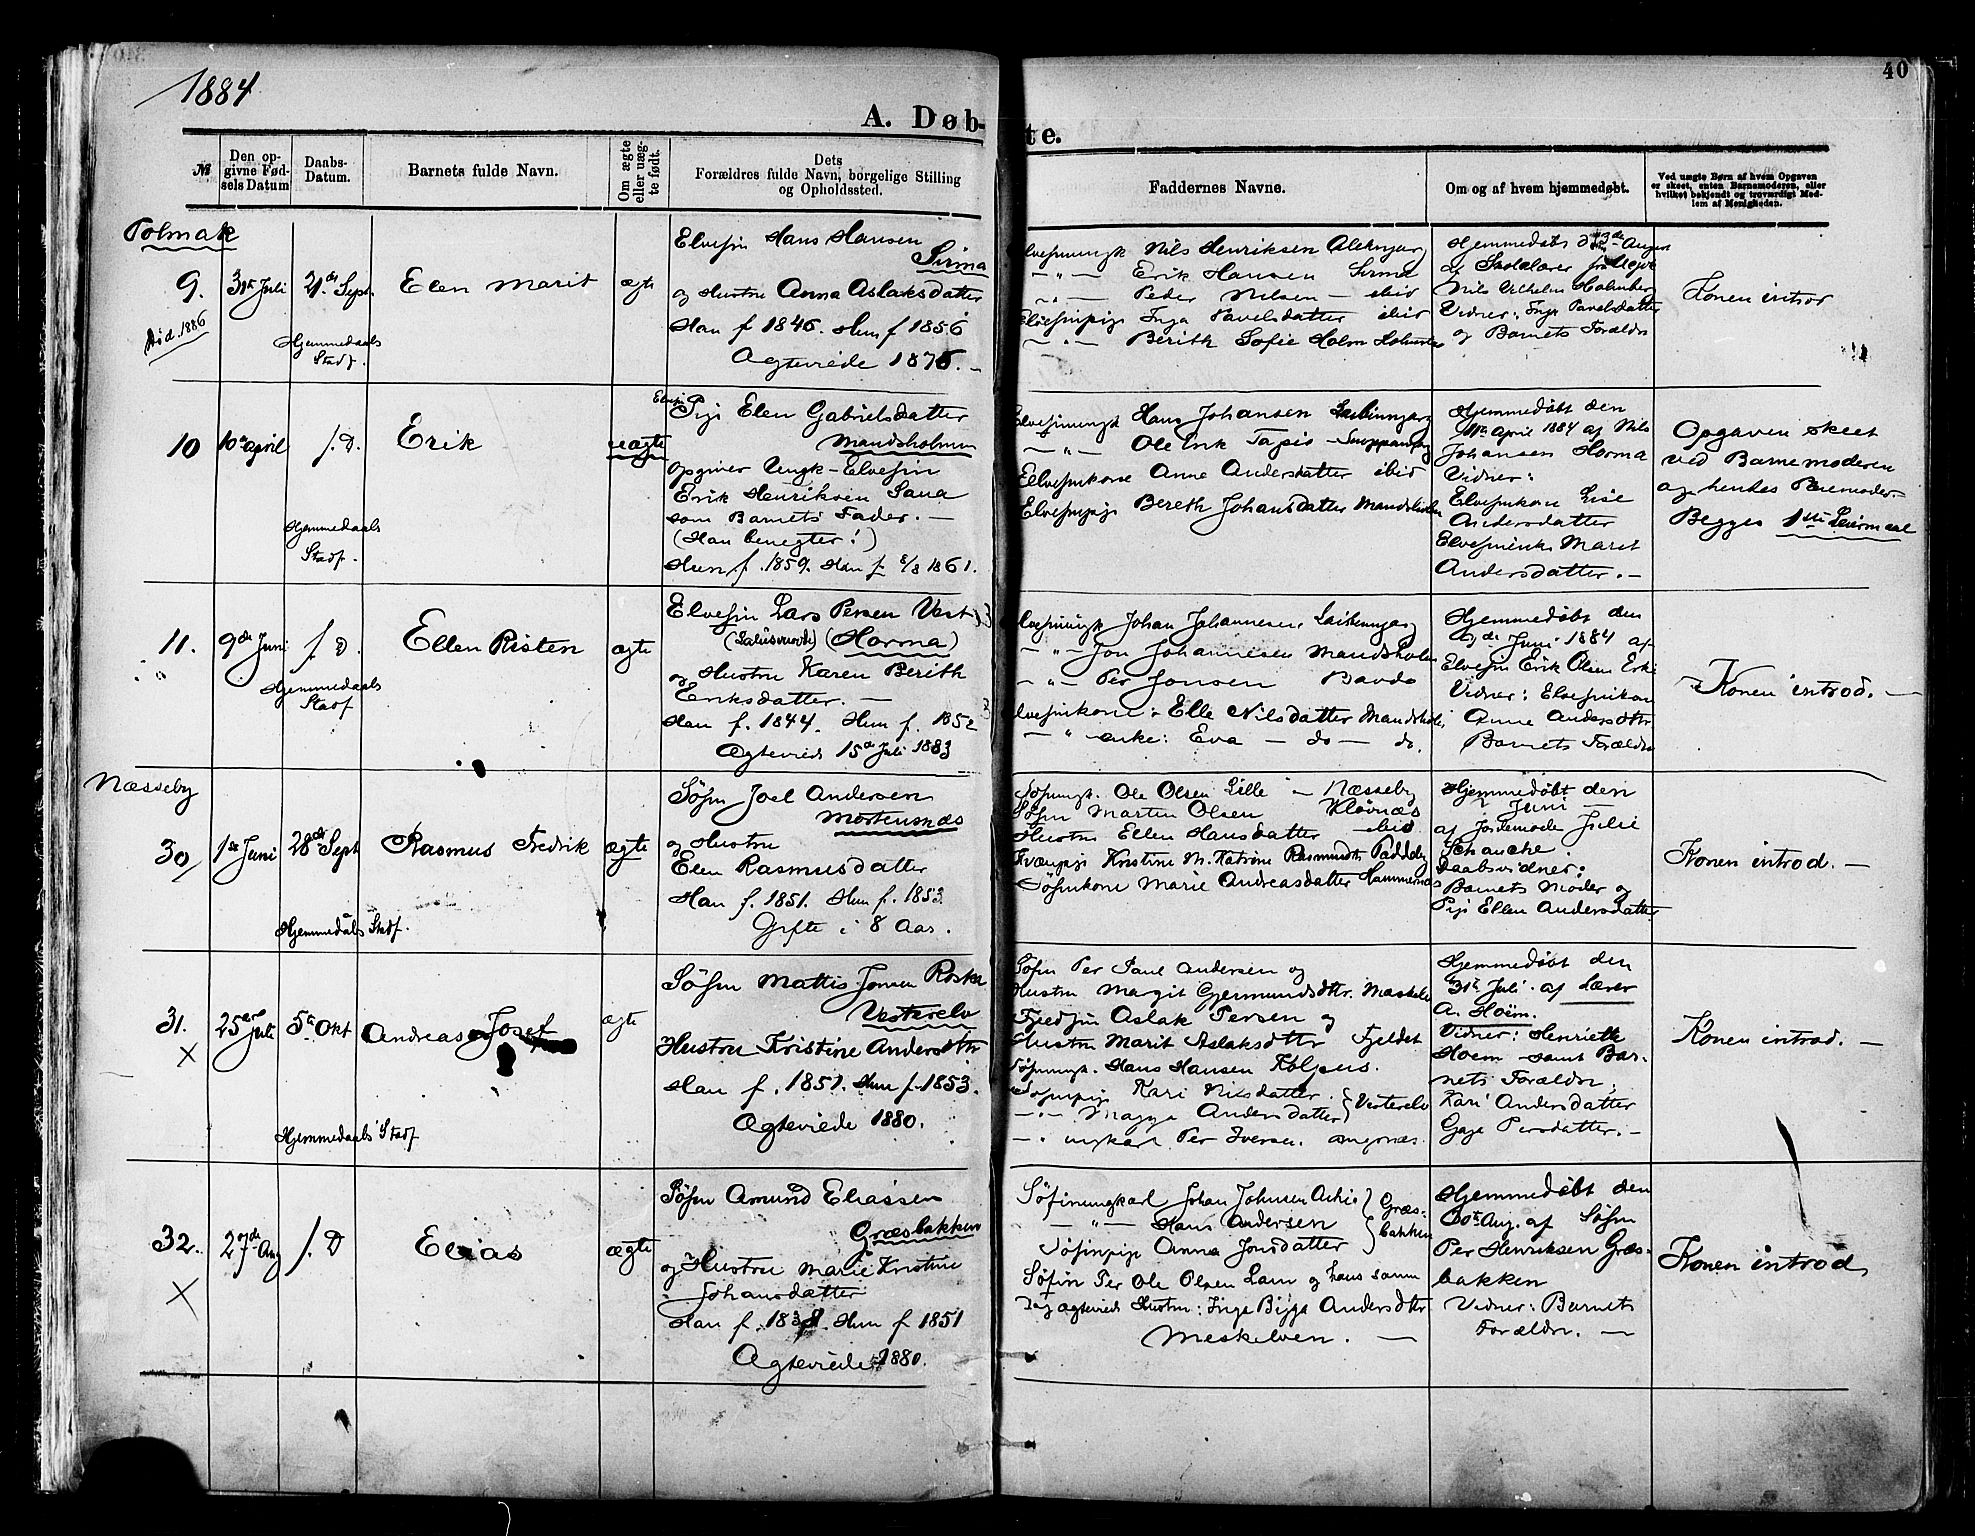 1884
40
A. Døb-
te.
№
Den op-
givne Fød-
sels Datum
Daabs-
Datum.
Barnets fulde Navn.
Om ægte
eller uæg-
te født.
Dets
Forældres fulde Navn, borgelige Stilling
og Opholdssted.
Faddernes Navne.
Om og af hvem hjemmedøbt.
Ved uægte Børn af hvem Opgaven
er skeet, enten Barnemoderen, eller
hvilket bekjendt og troværdigt Med-
lem af Menigheden.
Polmak
9.
Død. 1886
31te Juli
21de Sept.
Hjemmedaabs
Stadf.
Elen Marit
ægte
Elvefin Hans Hansen
Sirma
og Hustru Anna Aslaksdatter
Han f 1846. Hun f 1856
Ægteviede 1875. –
Nils Henriksen
–"– Erik Hansen Sirma
–"– Peder Nilsen – ibid
Inga Pavelsdatter ibid
–"– Berith Sofie Holm
Hjemmedøbt
af Skolelærer
Nils Vilhelm Holmberg
Vidner: Inga Pavelsdatter
og Barnets Forældre
Konen introd
10
10de April
s. D.
Hjemmedaabs
Stadf.
Erik
uægte
Elvefin
Pige Elen Gabrielsdatter
Mandsholmen
opgiver Ungk – Elvefin
Erik Henriksen Sana
som Barnets Fader. –
(Han benegter!)
Hun f. 1859. Han f 8/8 1861.
Hans Johansen
–"– Ole Erik Tapis
Elvefinkone Anne Andersdatter ibid
Elvefinpige Bereth Johansdatter Mandsholmen
Hjemmedøbt den
11te April 1884 af Nils
Johansen Horma
Vidner:
Elvefinkone Lise
Andersdatter
Marit
Andersdatter. –
Opgaven skeet
ved Barnemoderen
og hendes
Begges 1ste Leiermaal
11.
9de Juni
s D.
Hjemmedaabs
Stadf
Ellen Risten
ægte
Elvefin Lars Persen Vest
(Horma)
og Hustru Karen Berith
Eriksdatter. –
Han f. 1844. Hun f. 1852
Ægteviede 15de Juli 1883
Johan Johannesen
–"– Jon Johannesen Mandsholmen
–"– Per Jonsen
Elvefinkone: Elle Nilsdatter
–"– enke: Eva – do – do.
Hjemmedøbt den
Juni 1884 af
Elvefin Erik Olsen
Vidner: Elvefinkone
Anne Andersdttr
Barnets Forældre
Konen introd. –
Næsseby
30
1ste Juni
28de Sept
Hjemmedaabs Stadf.
Rasmus Fredrik
ægte
Søfin Joel Andersen
Mortensnæs
og Hustru
Elen Rasmusdatter
Han f. 1851. Hun f. 1853.
Gifte i 8 Aar.
Søfinungk. Ole Olsen Lille – Næsseby
Søfin Morten Olsen Klovnæs
Hustru Ellen Hansdatter – ibid
Kvænpige Kristine M. Katrine Rasmusdtr
Søfinkone Marie Andreasdatter Hammernæs
Hjemmedøbt den
2 Juni –
af Jordemoder Julie
Schanche
Daabsvidner:
Barnets Moder og
Pige Ellen Andersdatter
Konen introd. –
31.
X
25de Juli
5te Okt
Hjemmedaabs Stadf
Andreas Josef
ægte
Søfin Mattis Jonsen Roska
Vesterelv
Hustru Kristine Andersdttr
Han f. 1851. Hun f. 1853.
Ægteviede 1880.
Søfin Per Paul Andersen og
Hustru Margit Gjermundsdttr. Meskelv
Fjeldfin Aslak Persen og
Hustru Marit Aslaksdttr Fjeldet
Søfinungk. Hans Hansen Kolpus.
Søfinpige Kari Nilsdatter.
–"– Magga Andersdatter } Vesterelv
–"– ungkarl Per Iversen. Angsnæs
Hjemmedøbt den
31te Juli. af Lærer
A. Hoëm.
Vidner: Henriette
Hoem – samt Bar-
nets Forældre.
Kari Andersdatter
Persdatter. –
Konen introd. –
32.
X
27de Aug
s. D
Elias
ægte
Søfin Amund Eliassen
Græsbakken
og Hustru Marie Kristine
Johansdatter
Han f. 1838. Hun f 1851
Ægteviede 1880.
Søfinungkarl Johan Johnsen
–"– Hans Andersen
Søfinpige Anna Jonsdatter } Græs-
bakken
Søfin Per Ole Olsen Lam og hans samme
Dag ægteviede Hustru: Inga Bigga Andersdttr
Meskelven. –
Hjemmedøbt den
30te Aug. af Søfin
Per Henriksen Græs-
bakken
Vidner: Barnets
Forældre. –
Konen introd